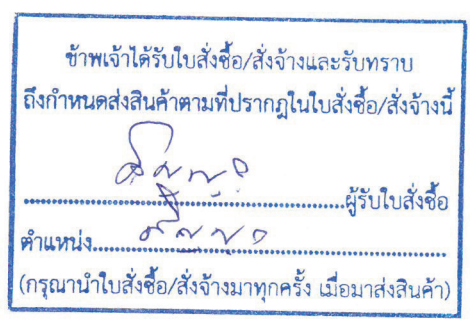 ข้าพเจ้าได้รับใบสั่งซื้อ/สั่งจ้างและรับทราบ
ถึงกำหนดส่งสินค้าตามที่ปรากฏในใบสั่งซื้อ/สั่งจ้างนี้
............................................................ผู้รับใบสั่งซื้อ
ตำแหน่ง............................................................
(กรุณานำใบสั่งซื้อ/สั่งจ้างมาทุกครั้ง เมื่อมาส่งสินค้า)